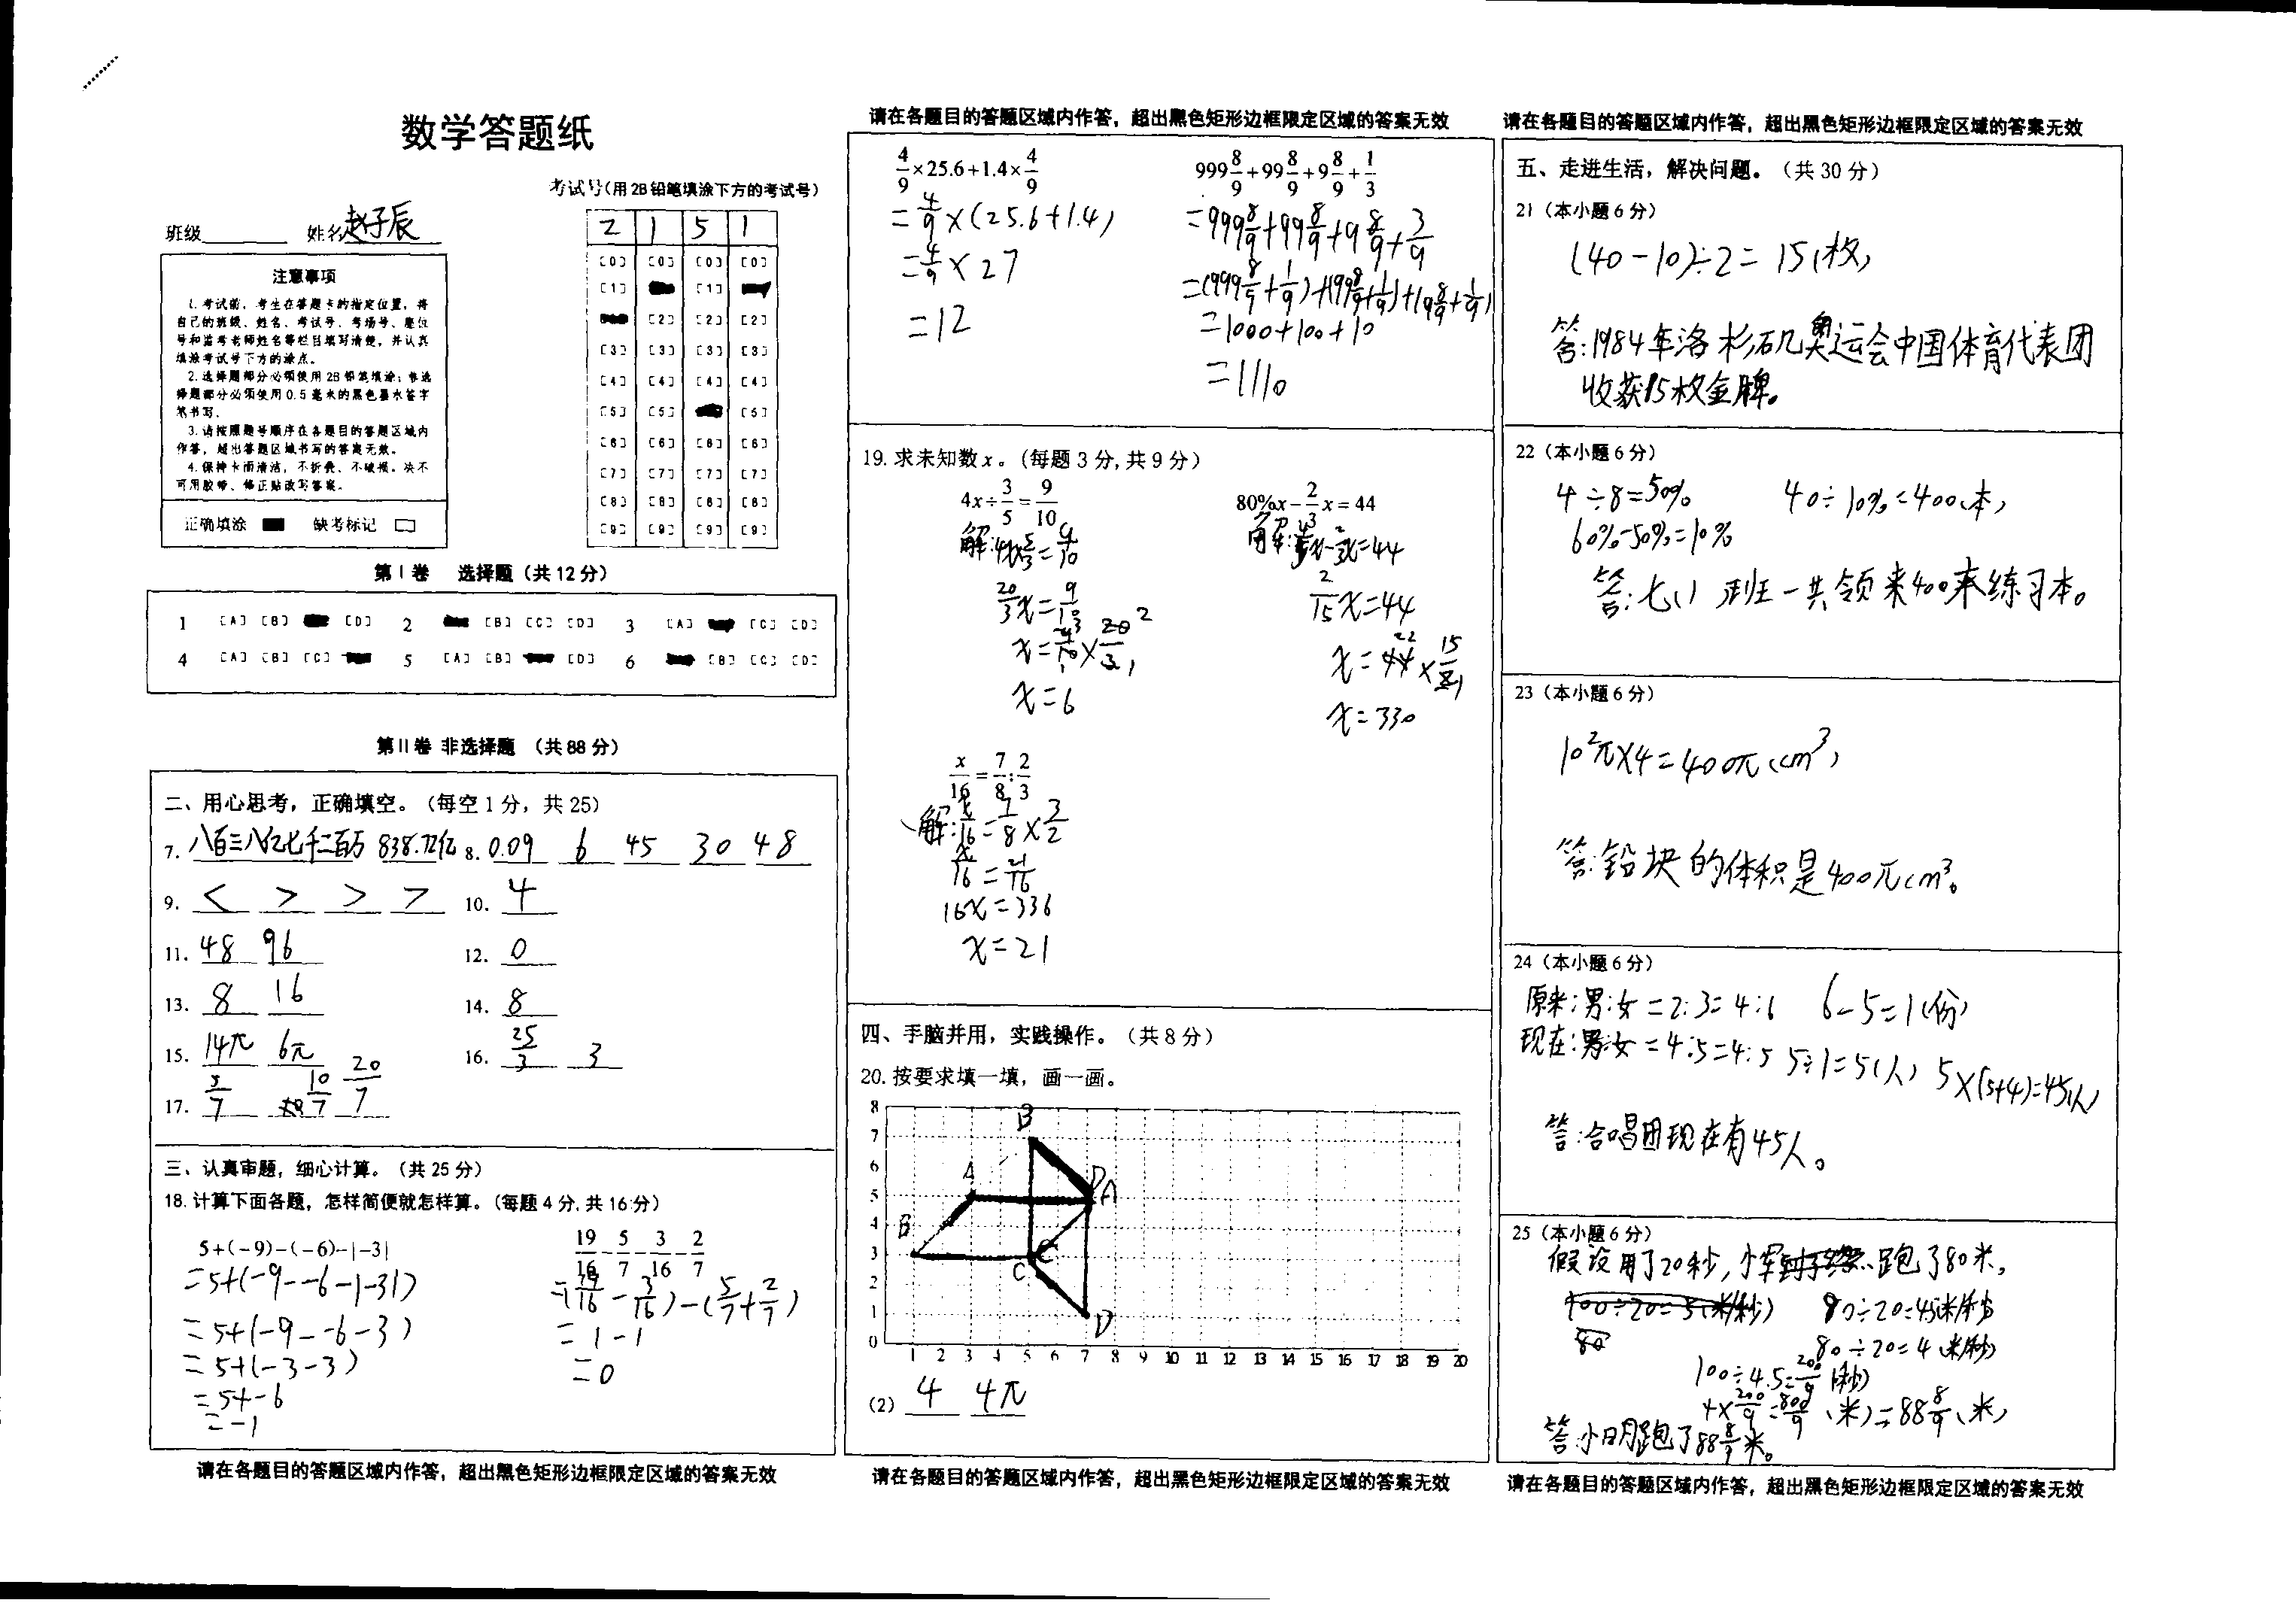 数学答题纸
考试号(用2B铅笔填涂下方的考试号)
班级 姓名 赵子辰
2 1 5 1
注意事项
1.考试前，考生在答题卡的指定位置，将
自己的班级、姓名、考试号、考场号、座位
号和监考老师姓名等栏目填写清楚，并认真
填涂考试号下方的涂点。
2.选择题部分必须使用2B铅笔填涂；非选
择题部分必须使用0.5毫米的黑色墨水签字
笔书写。
3.请按照题号顺序在各题目的答题区域内
作答，超出答题区域书写的答案无效。
4.保持卡面清洁，不折叠、不破损。决不
可用胶带、修正贴改写答案。
正确填涂 缺考标记
[0] [0] [0] [0]
[1] [1]
[2] [2] [2]
[3] [3] [3] [3]
[4] [4] [4] [4]
[5] [5] [5]
[6] [6] [6] [6]
[7] [7] [7] [7]
[8] [8] [8] [8]
[9] [9] [9] [9]
第Ⅰ卷 选择题（共12分）
1 [A] [B] [D] 2 [B] [C] [D] 3 [A] [C] [D]
4 [A] [B] [C] 5 [A] [B] [D] 6 [B] [C] [D]
第Ⅱ卷 非选择题 （共88分）
二、用心思考，正确填空。（每空1分，共25）
7. 八百三八亿七千二百万 838.72亿 8. 0.09 6 45 30 48
9. < > > > 10. 4
11. 48 96 12. 0
13. 8 16 14. 8
15. 14π 6π 16. 25/3 3
17. 5/7 10/7 20/7
三、认真审题，细心计算。（共25分）
18.计算下面各题，怎样简便就怎样算。（每题4分,共16分）
5+(-9)-(-6)-|-3|
=5+(-9--6-|-3|)
=5+(-9--6-3)
=5+(-3-3)
=5+-6
=-1
19/16-5/7-3/16-2/7
=(19/16-3/16)-(5/7+2/7)
=1-1
=0
请在各题目的答题区域内作答，超出黑色矩形边框限定区域的答案无效
请在各题目的答题区域内作答，超出黑色矩形边框限定区域的答案无效
4/9×25.6+1.4×4/9
=4/9×(25.6+1.4)
=4/9×27
=12
999 8/9+99 8/9+9 8/9+1/3
=999 8/9+99 8/9+9 8/9+3/9
=(999 8/9+1/9)+(99 8/9+1/9)+(9 8/9+1/9)
=1000+100+10
=1110
19.求未知数x。(每题3分,共9分)
4x÷3/5=9/10
解:4x×5/3=9/10
20/3x=9/10
x=9/10×20/3
x=6
80%x-2/3x=44
解:4/5x-2/3x=44
2/15x=44
x=44×15/2
x=330
x/16=7/8:2/3
解:x/16=7/8×3/2
x/16=21/16
16x=336
x=21
四、手脑并用，实践操作。（共8分）
20.按要求填一填，画一画。
8
7
6
5
4
3
2
1
0
B
A D A
B
C C
D
1 2 3 4 5 6 7 8 9 10 11 12 13 14 15 16 17 18 19 20
(2) 4 4π
请在各题目的答题区域内作答，超出黑色矩形边框限定区域的答案无效
请在各题目的答题区域内作答，超出黑色矩形边框限定区域的答案无效
五、走进生活，解决问题。（共30分）
21（本小题6分）
(40-10)÷2=15(枚)
答:1984年洛杉矶奥运会中国体育代表团
收获15枚金牌。
22（本小题6分）
4÷8=50% 40÷10%=400(本)
60%-50%=10%
答:七(1)班一共领来400本练习本。
23（本小题6分）
10²π×4=400π(cm³)
答:铅块的体积是400πcm³。
24（本小题6分）
原来:男:女=2:3=4:6 6-5=1(份)
现在:男:女=4:5=4:5 5÷1=5(人) 5×(5+4)=45(人)
答:合唱团现在有45人。
25（本小题6分）
假设用了20秒,小军跑了80米,
100÷20=5(米/秒) 90÷20=4.5(米/秒)
80 80÷20=4(米/秒)
100÷4.5=200/9(秒)
4×200/9=800/9(米)=88 8/9(米)
答:小明跑了88 8/9米。
请在各题目的答题区域内作答，超出黑色矩形边框限定区域的答案无效